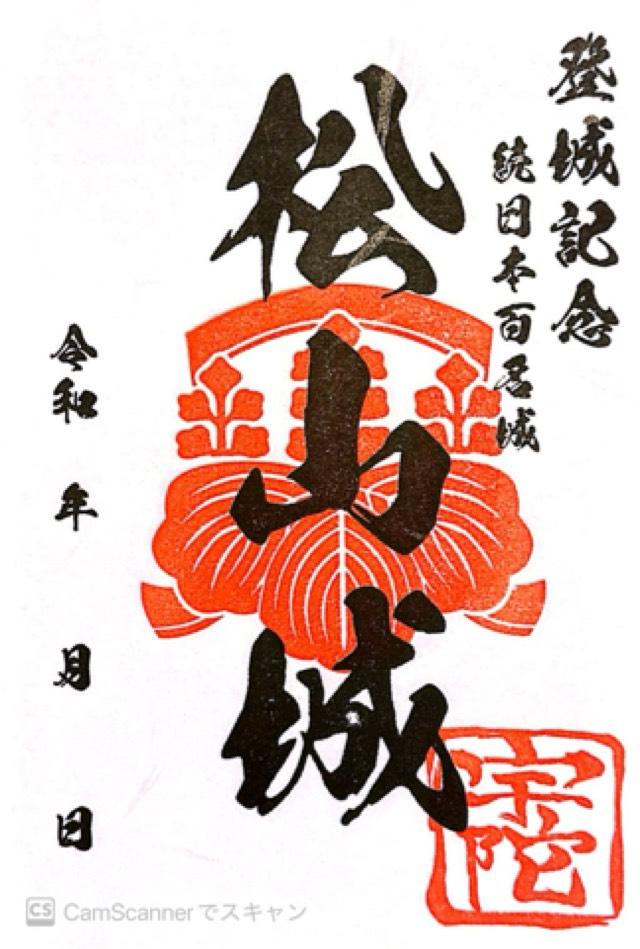 登城記念
続日本百名城
松山城
令和 年 月 日
宇陀
CS CamScannerでスキャン